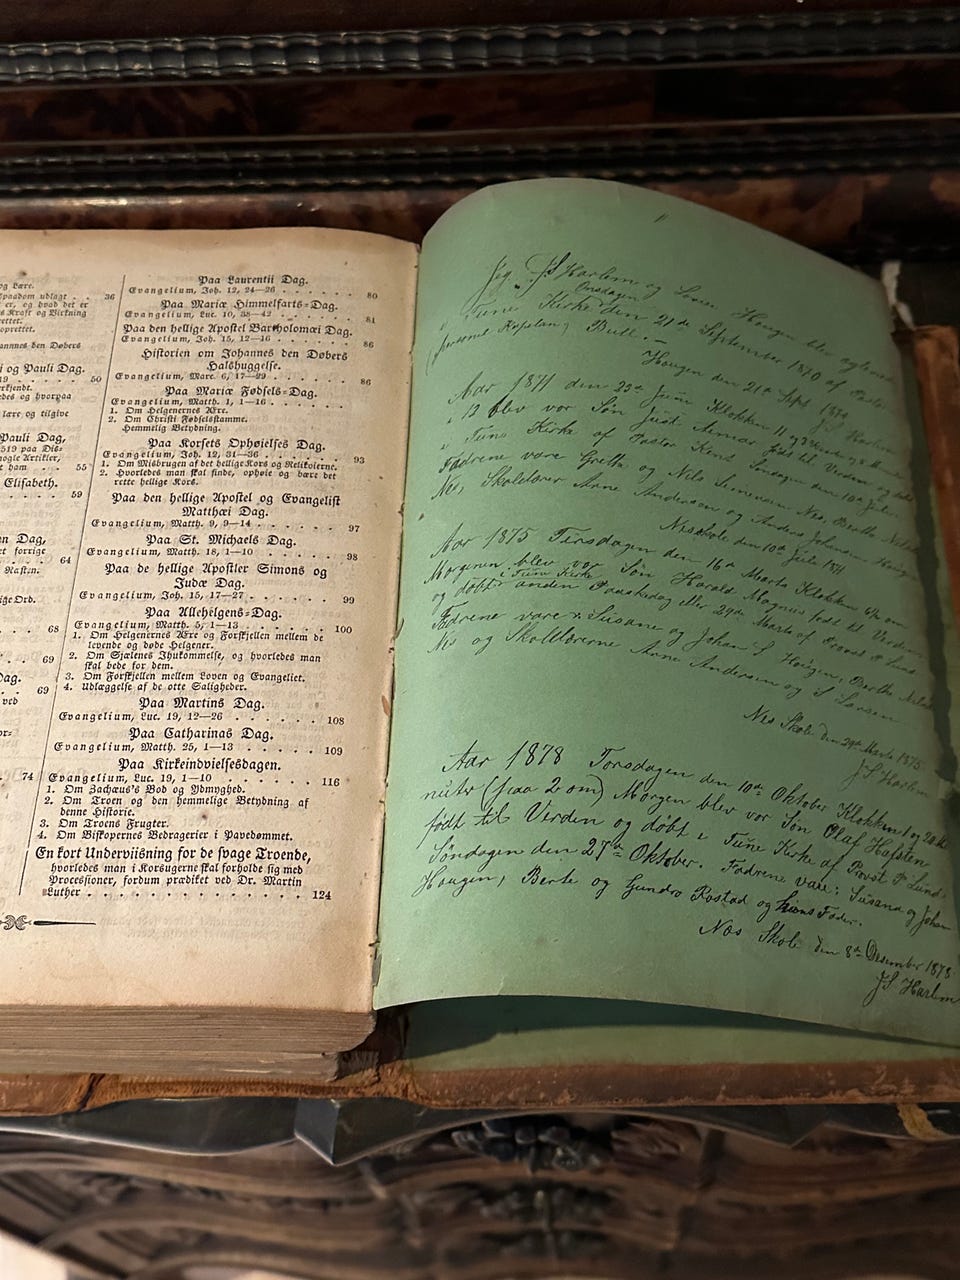 og Lære.
ipaadom udlagt . . 36
r er, og hvad det er
s Kraft og Virkning
rettet.
oprettet.
hannes den Døbers
i og Pauli Dag.
19 . . . . . 50
rkjendt.
edes og hvorpaa
lære og tilgive
Pauli Dag,
519 paa Dis-
nogle Artikler,
t ham . . . 55
Elisabeth.
. . . . 59
n Dag,
et forrige
. . . . 64
Fasten.
ige Ord.
. . . 68
. . . 69
Dag.
. . . 69
ved
74
Paa Laurentii Dag.
Evangelium, Joh. 12, 24—26 . . . . . . . 80
Paa Mariæ Himmelfarts-Dag.
Evangelium, Luc. 10, 38—42 . . . . . . . 81
Paa den hellige Apostel Bartholomæi Dag.
Evangelium, Joh. 15, 12—16 . . . . . . . 86
Historien om Johannes den Døbers
Halshuggelse.
Evangelium, Marc. 6, 17—29 . . . . . . . 86
Paa Mariæ Fødsels-Dag.
Evangelium, Matth. 1, 1—16 . . . . . . .
1. Om Helgenernes Ære.
2. Om Christi Fødselsstamme.
Hemmelig Betydning.
Paa Korsets Ophøielses Dag.
Evangelium, Joh. 12, 31—36 . . . . . . . 93
1. Om Misbrugen af det hellige Kors og Relikvierne.
2. Hvorledes man skal finde, ophøie og bære det
rette hellige Kors.
Paa den hellige Apostel og Evangelist
Matthæi Dag.
Evangelium, Matth. 9, 9—14 . . . . . . . 97
Paa St. Michaels Dag.
Evangelium, Matth. 18, 1—10 . . . . . . . 98
Paa de hellige Apostler Simons og
Judæ Dag.
Evangelium, Joh. 15, 17—27 . . . . . . . 99
Paa Allehelgens-Dag.
Evangelium, Matth. 5, 1—13 . . . . . . . 100
1. Om Helgenernes Ære og Forskjellen mellem de
levende og døde Helgener.
2. Om Sjælenes Ihukommelse, og hvorledes man
skal bede for dem.
3. Om Forskjellen mellem Loven og Evangeliet.
4. Udlæggelse af de otte Saligheder.
Paa Martins Dag.
Evangelium, Luc. 19, 12—26 . . . . . . . 108
Paa Catharinas Dag.
Evangelium, Matth. 25, 1—13 . . . . . . . 109
Paa Kirkeindvielsesdagen.
Evangelium, Luc. 19, 1—10 . . . . . . . 116
1. Om Zachæus's Bod og Ydmyghed.
2. Om Troen og den hemmelige Betydning af
denne Historie.
3. Om Troens Frugter.
4. Om Biskopernes Bedragerier i Pavedømmet.
En kort Underviisning for de svage Troende,
hvorledes man i Korsugerne skal forholde sig med
Processioner, fordum prædiket ved Dr. Martin
Luther . . . . . . . . . . . . . 124
Jeg, JS Harlem og Haugen blev
Onsdagen
Tune Kirke den 21de September 1870 af Pastor
(personel Kapelan) Bull. —
Haugen den 21de Sept 1870
JS Harlem
Aar 1871 den 23de Juni Klokken 11 og
13 blev vor Søn født til Verden og døbt
Tune Kirke af Pastor Søndagen den 10de Juli
Fadrene vare Grethe og Nils Simensen Nes, Berthe
Nes, Skolelærer Arne Andersen og Anders Johansen Haugen
Nes Skole den 10de Juli 1871
Aar 1875 Tirsdagen den 16de Marts Klokken 6½ om
Morgenen blev vor Søn Harald Magnus født til Verden
i Tune Kirke
og døbt anden Paaskedag eller 29de Marts af Provst P Lund
Fadrene vare: Susane og Johan Haugen, Berthe
Nes og Skolelærerne Arne Andersen og S Larsen
Nes Skole den 29de Marts 1875
JS Harlem
Aar 1878 Torsdagen den 10de Oktober Klokken 1 og 20 Mi
nuter (paa 2 om) Morgen blev vor Søn Olaf Hafsten
født til Verden og døbt i Tune Kirke af Provst P Lund
Søndagen den 27de Oktober. Fadrene vare: Susana og Johan
Haugen, Berte og Gundro Rostad og hans Fader.
Nes Skole den 8de Desember 1878
JS Harlem